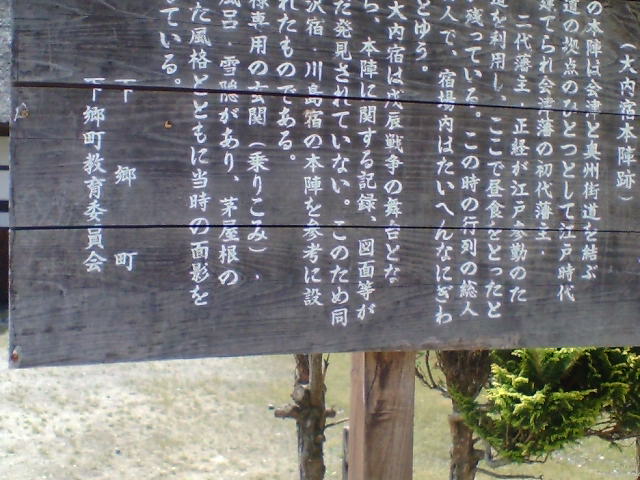 (大内宿本陣跡)
の本陣は会津と奥州街道を結ぶ
道の拠点のひとつとして江戸時代
てられ会津藩の初代藩主・
二代藩主・正経が江戸参勤のた
を利用し、ここで昼食をとったと
残っている。この時の行列の総人
人で、宿場内はたいへんなにぎわ
とゆう。
大内宿は戊辰戦争の舞台とな
ら、本陣に関する記録、図面等が
た発見されていない。このため同
沢宿・川島宿の本陣を参考に設
れたものである。
様専用の玄関(乗りこみ)、
風呂・雪隠があり、茅屋根の
た風格とともに当時の面影を
ている。
下郷町
下郷町教育委員会